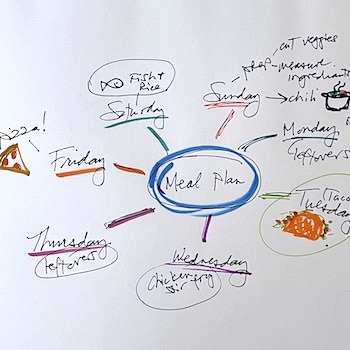 Meal Plan
Sunday
prep
cut veggies
measure
ingredients
chili
Monday
leftovers
Taco
Tuesday
Wednesday
Chicken fry
stir
Thursday
leftovers
Friday
pizza!
Saturday
Fish +
Rice